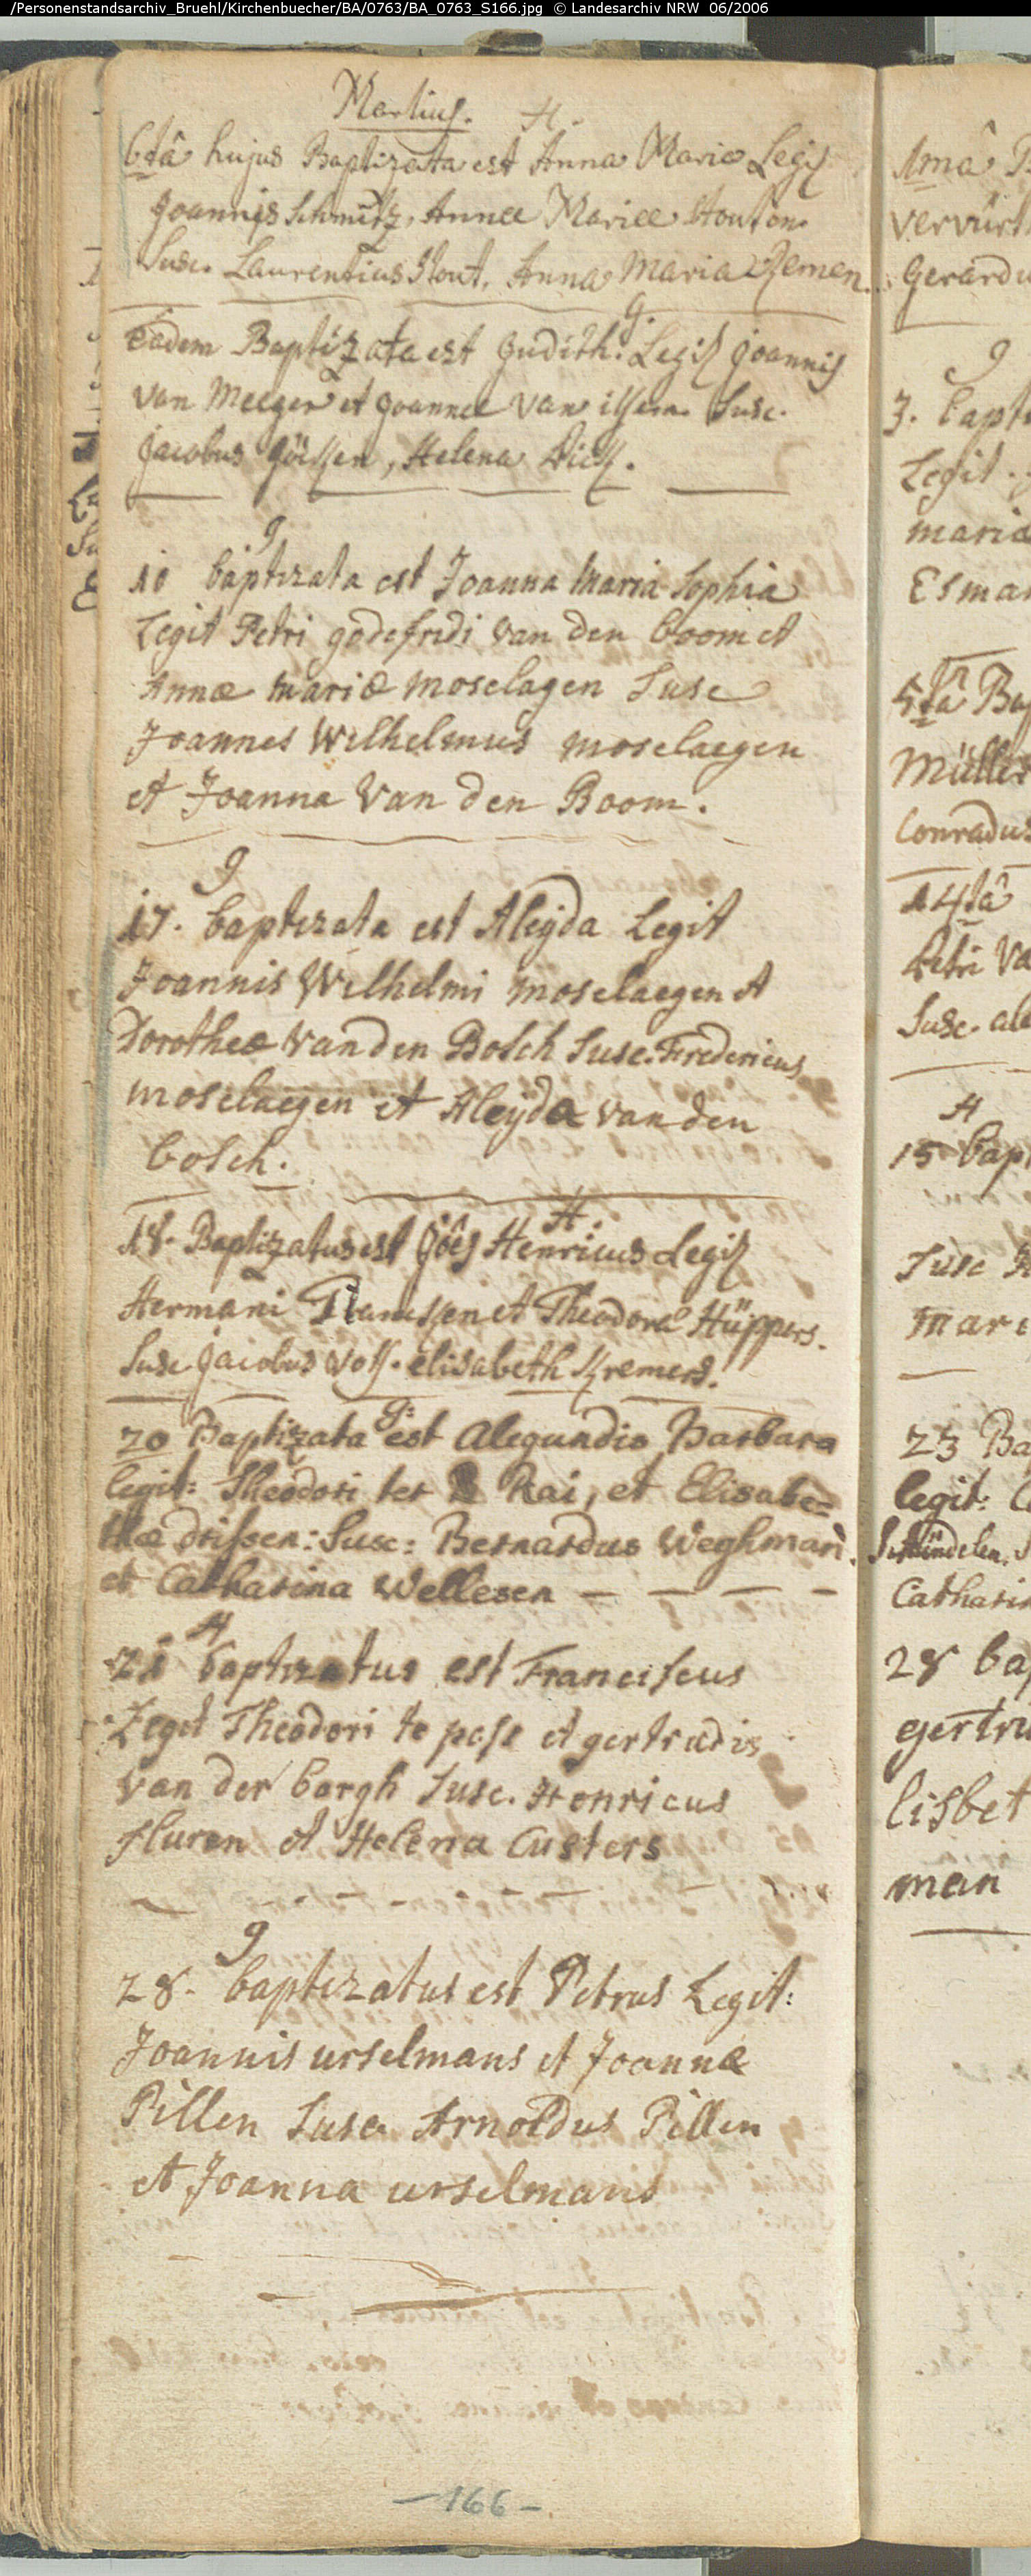 /Personenstandsarchiv_Bruehl/Kirchenbuecher/BA/0763/BA_0763_S166.jpg © Landesarchiv NRW 06/2006
Martius. H.
6tâ hujus Baptizata est Anna Maria Legit
Joannis Schmitz, Annee Mariee Stouten
Susc. Laurentius Stout, Anna Maria
g.
Eadem Baptizata est Judith. Legit Joannis
van Meeger et Joannee van ilsem. Susc.
Jacobus Göessen, Helena
g
10 baptizata est Joanna Maria Sophia
Legit Petri godefridi van den boom et
Annæ mariæ moselagen Susc
Joannes Wilhelmus moselaegen
et Joanna Van den Boom.
g
17. baptizata est Aleyda Legit
Joannis Wilhelmi moselaegen et
Dorotheæ Van den Bosch Susc. Fredericus
moselaegen et Aleyda van den
bosch.
H.
18. Baptizatus est Jôes Henricus Legit
Hermani et Theodora Hüppers.
Susc Jacobus Voss. elisabeth Kremers.
g:
20 Baptizata est Alegundis Barbara
legit: Theodori ter Rai, et Elisabe=
thæ drissen: Susc: Bernardus Weghman.
et Catharina Wellesen
H
21 baptizatus est Franciscus
Legit Theodori te pass et gertrudis
van der borgh Susc. Henricus
fluren et Helena Custers
g
28. baptizatus est Petrus Legit:
Joannis urselmans et Joannæ
Pillen Susc Arnoldus Pillen
et Joanna urselmans
-166-
1mâ
vervürt
Gerardu
g
3. bapt
Legit.
maria
Esma
5tâ Bap
Müller
Conradus
14tâ
Petri Va
Susc. al
H
15 bap
Susc
mari
23 Ba
legit:
Schündelen,
Catharin
28 ba
gertru
lisbet
man